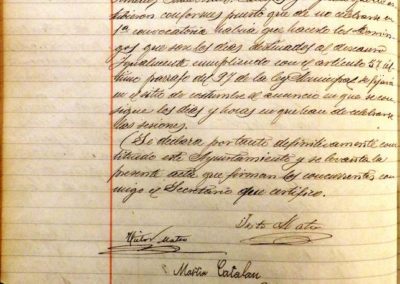 tuvieron conformes puesto que de no celebrarse en
1ª convocatoria habria que hacerlo los Domin-
gos que son los dias destinados al descanso
Igualmente cumpliendo con el articulo 57 ul-
timo parrafo del 97 de la ley Municipal se fijará
en el sitio de costumbre el anuncio en que se con-
signe los dias y horas en que han de celebrarse
las sesiones.
Se declara por tanto definitivamente cons-
tituido este Ayuntamiento y se levanta la
presente acta que firman los concurrentes con-
migo el Secretario que certifico.
Mateu
Victor Mateu
Martin Catalan